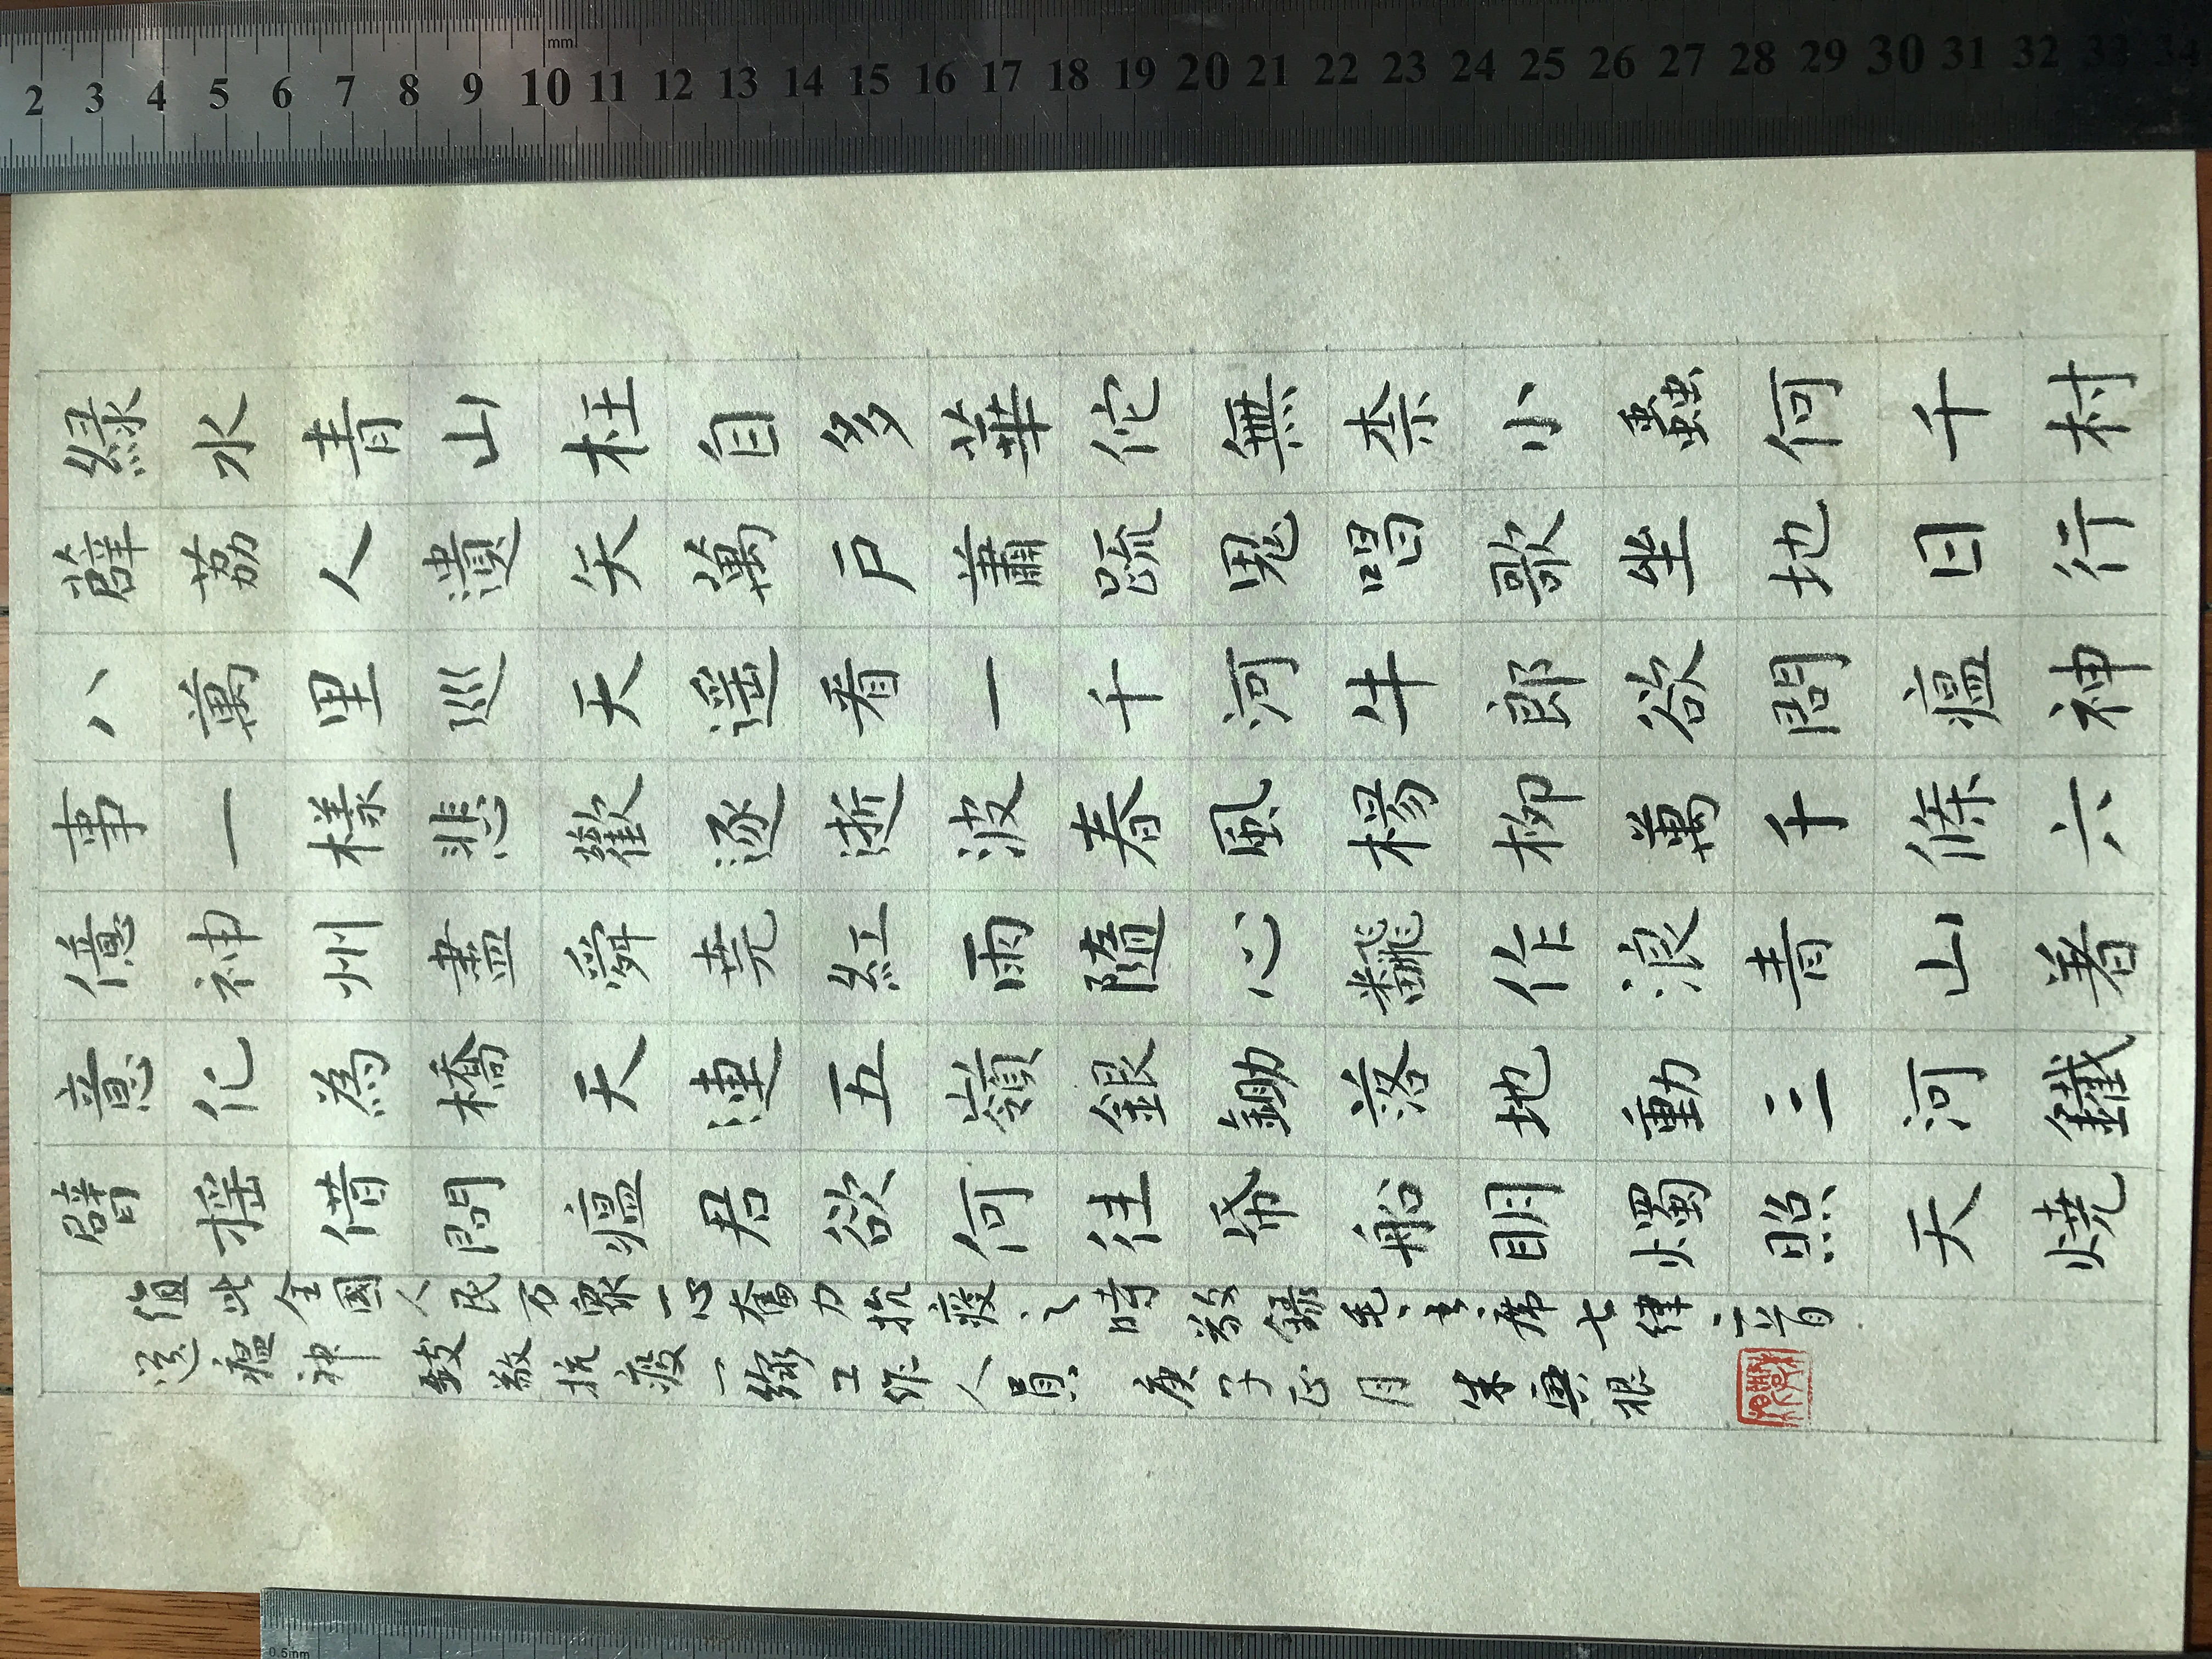 綠水青山枉自多華佗無柰小蟲何千村
薜荔人遺矢萬户蕭䟽鬼唱歌坐地日行
八萬里巡天遥看一千河牛郎欲問瘟神
事一樣悲歡逐逝波春風楊柳萬千條六
億神州盡舜堯紅雨隨心飜作浪青山着
意化為橋天連五嶺銀鋤落地動三河鐵
臂摇借問瘟君欲何往帋船明燭照天燒
值此全國人民万衆一心奮力抗疫之時敬録毛主席七律二首
送瘟神 致敬抗疫一線工作人員 庚子正月 朱興根
2 3 4 5 6 7 8 9 10 11 12 13 14 15 16 17 18 19 20 21 22 23 24 25 26 27 28 29 30 31 32 33 34
mm
0.5mm